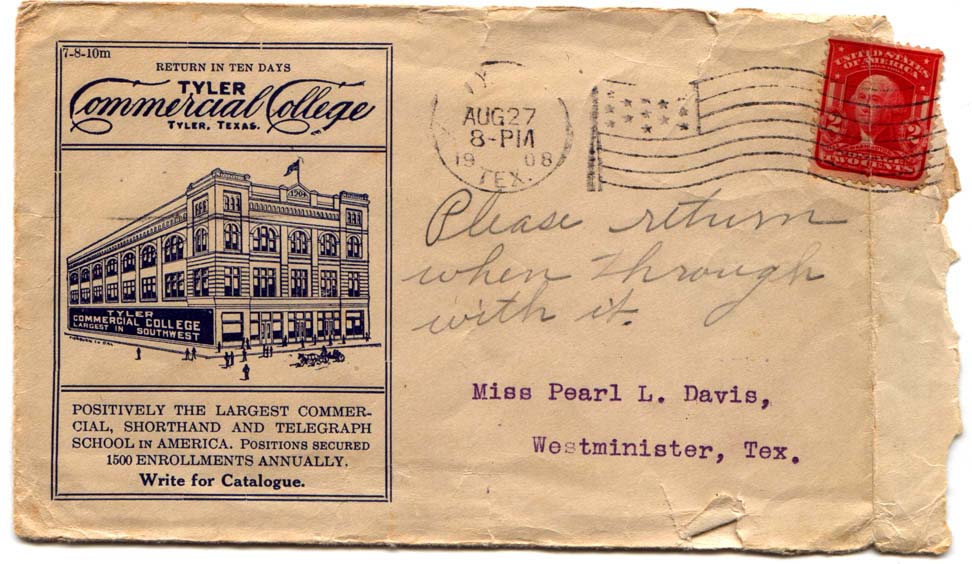 7-8-10m
RETURN IN TEN DAYS
TYLER
Commercial College
TYLER, TEXAS.
1904
TYLER
COMMERCIAL COLLEGE
LARGEST IN SOUTHWEST
POSITIVELY THE LARGEST COMMER-
CIAL, SHORTHAND AND TELEGRAPH
SCHOOL IN AMERICA. POSITIONS SECURED
1500 ENROLLMENTS ANNUALLY.
Write for Catalogue.
AUG 27
8-PM
19 08
TEX.
UNITED STATES
OF AMERICA
2 2
TWO CENTS
Please return
when through
with it.
Miss Pearl L. Davis,
Westminister, Tex.